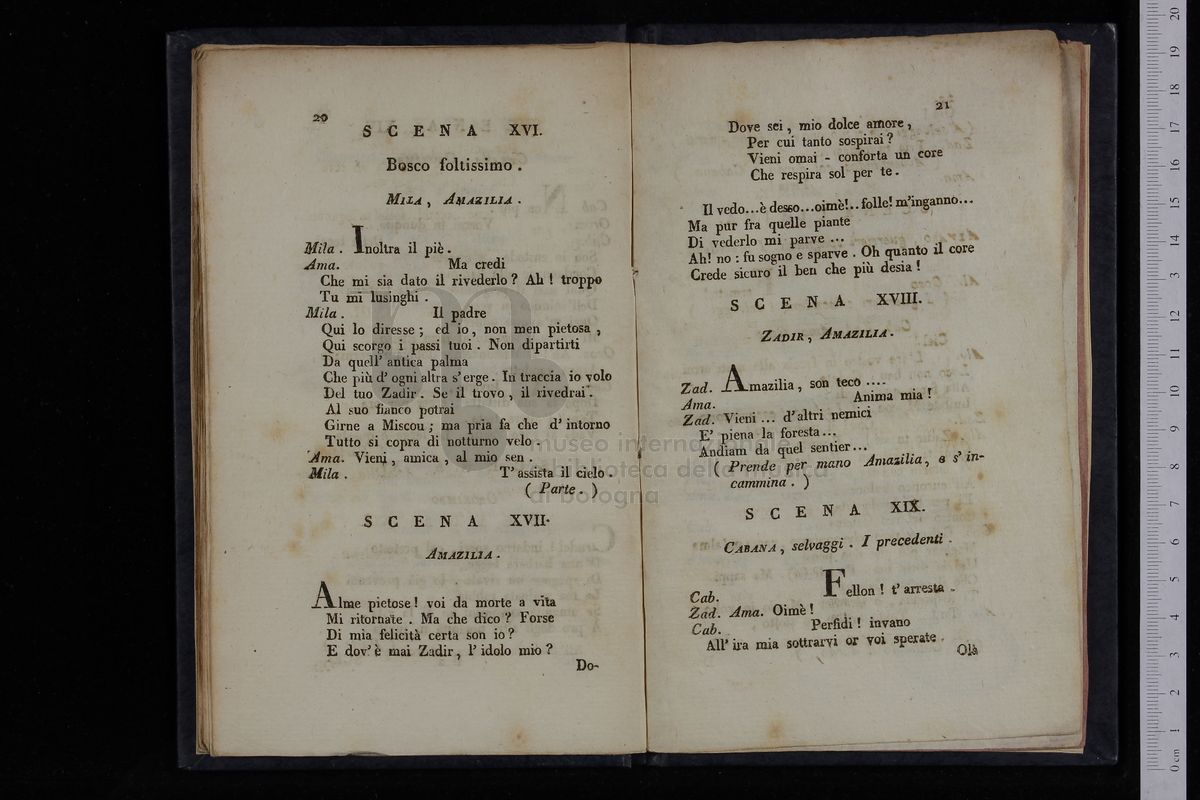 20
SCENA XVI.
Bosco foltissimo.
MILA, AMAZILIA.
Mila. Inoltra il piè.
Ama. Ma credi
Che mi sia dato il rivederlo? Ah! troppo
Tu mi lusinghi.
Mila. Il padre
Qui lo diresse; ed io, non men pietosa,
Qui scorgo i passi tuoi. Non dipartirti
Da quell' antica palma
Che più d' ogni altra s' erge. In traccia io volo
Del tuo Zadir. Se il trovo, il rivedrai.
Al suo fianco potrai
Girne a Miscou; ma pria fa che d' intorno
Tutto si copra di notturno velo.
Ama. Vieni, amica, al mio sen.
Mila. T' assista il cielo.
(Parte.)
SCENA XVII.
AMAZILIA.
Alme pietose! voi da morte a vita
Mi ritornate. Ma che dico? Forse
Di mia felicità certa son io?
E dov' è mai Zadir, l' idolo mio?
Do-
21
Dove sei, mio dolce amore,
Per cui tanto sospirai?
Vieni omai - conforta un core
Che respira sol per te.
Il vedo...è desso...oimè!..folle! m'inganno...
Ma pur fra quelle piante
Di vederlo mi parve ...
Ah! no: fu sogno e sparve. Oh quanto il core
Crede sicuro il ben che più desia!
SCENA XVIII.
ZADIR, AMAZILIA.
Zad. Amazilia, son teco ....
Ama. Anima mia!
Zad. Vieni ... d' altri nemici
E' piena la foresta...
Andiam da quel sentier...
(Prende per mano Amazilia, e s' in-
cammina.)
SCENA XIX.
CABANA, selvaggi. I precedenti.
Cab. Fellon! t' arresta.
Zad. Ama. Oimè!
Cab. Perfidi! invano
All' ira mia sottrarvi or voi sperate.
Olà
museo internazionale
biblioteca della musica
di bologna
0 cm 1 2 3 4 5 6 7 8 9 10 11 12 13 14 15 16 17 18 19 20